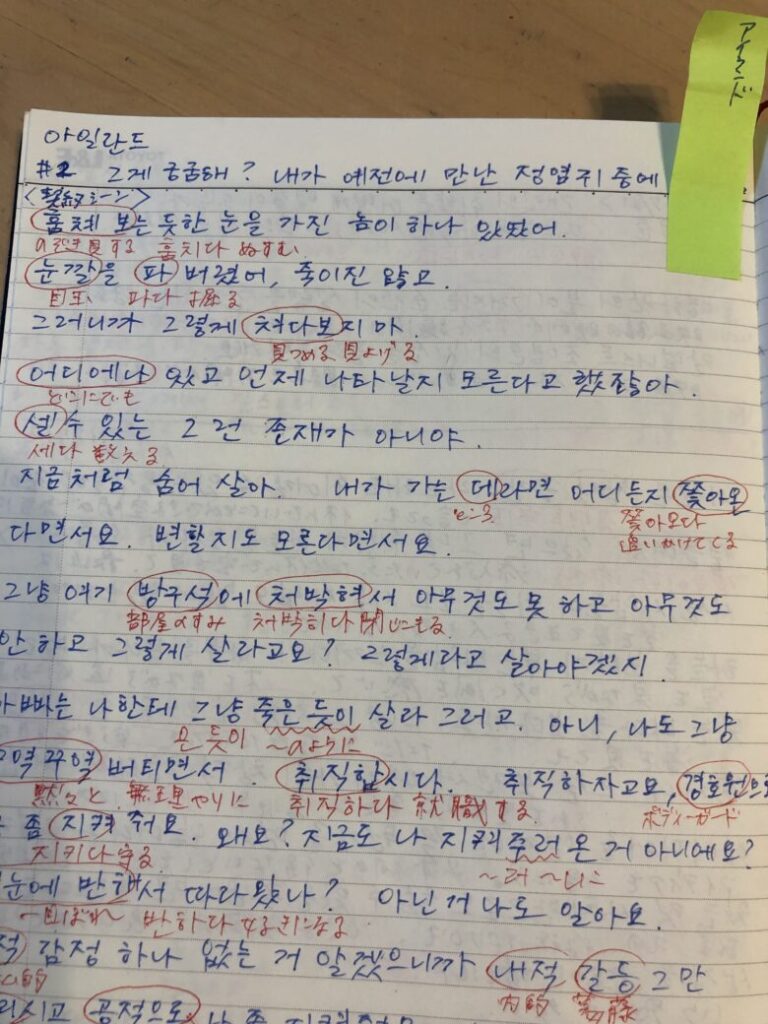 アイランド
아일란드
#2 그게 궁금해? 내가 예전에 만난 정염귀 중에
<契約シーン>
훔쳐 보는 듯한 눈을 가진 놈이 하나 있었어.
のぞき見する 훔치다 ぬすむ
눈깔을 파 버렸어, 죽이진 않고.
目玉 파다 掘る
그러니까 그렇게 쳐다보지마.
見つめる 見上げる
어디에나 있고 언제 나타날지 모른다고 했잖아.
どこにでも
셀 수 있는 그런 존재가 아니야.
세다 数える
지금처럼 숨어 살아. 내가 가는 데라면 어디든지 쫓아온
ところ 쫓아오다
追いかけてくる
다면서요. 변할지도 모른다면서요.
그냥 여기 방구석에 처박혀서 아무것도 못 하고 아무것도
部屋のすみ 처박히다 閉じこもる
안 하고 그렇게 살라고요? 그렇게라고 살아야겠지.
아빠는 나한테 그냥 죽은 듯이 살라 그러고. 아니, 나도 그냥
은 듯이 ~のように
꾸역꾸역 버티면서. 취직합시다. 취직하자고요, 경호원으로
黙々と 無理やりに 취직하다 就職する ボディーガード
좀 지켜 줘요. 왜요? 지금도 나 지켜 주러 온 거 아니에요?
지키다 守る ~러 ~しに
눈에 반해서 따라왔나? 아닌 거 나도 알아요.
一目ぼれ 반하다 好きになる
적 감정 하나 없는 거 알겠으니까 내적 갈등 그만
的 内的 葛藤
시고 공적으로